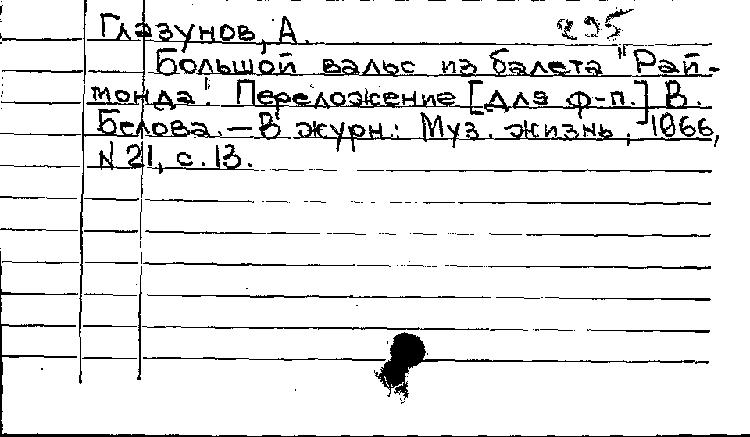 Глазунов, А. 295
Большой вальс из балета "Рай-
монда". Переложение [для ф-п.] В.
Белова. — В журн.: Муз. жизнь, 1966,
N 21, с. 13.